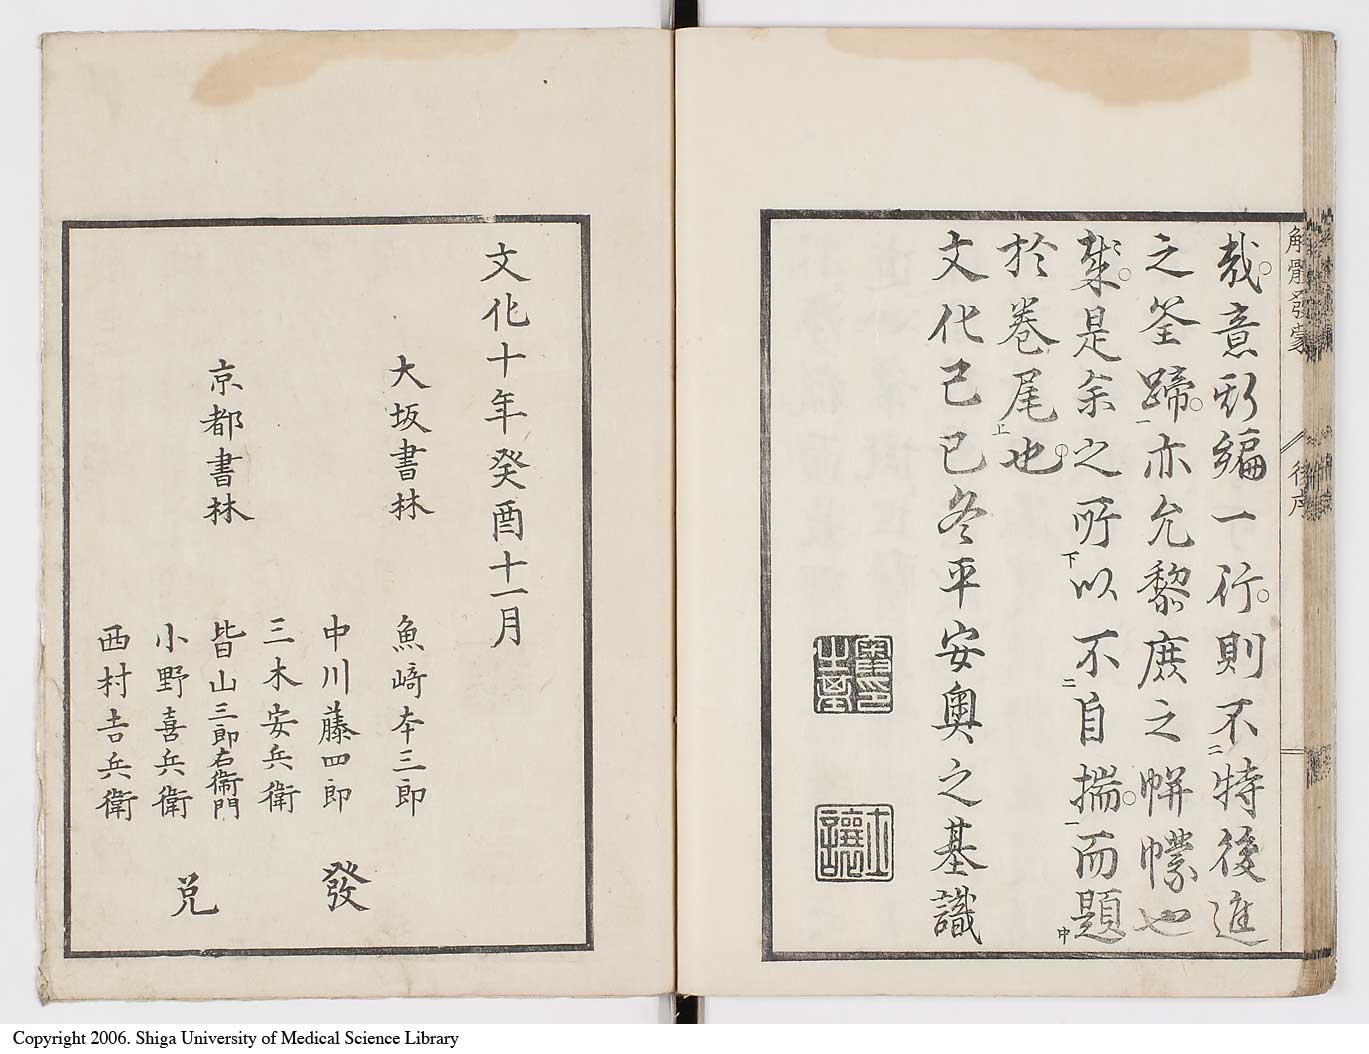 解體發蒙
後序
哉意斯編一行則不特後進
之筌蹄亦允黎庶之帡幪也
哉是余之所以不自揣而題
於卷尾也
文化己巳冬平安奧之基識
文化十年癸酉十一月
大坂書林
魚﨑夲三郎
中川藤四郎
京都書林
三木安兵衛
皆山三郎右衛門
小野喜兵衛
西村吉兵衛
發
兌
Copyright 2006. Shiga University of Medical Science Library